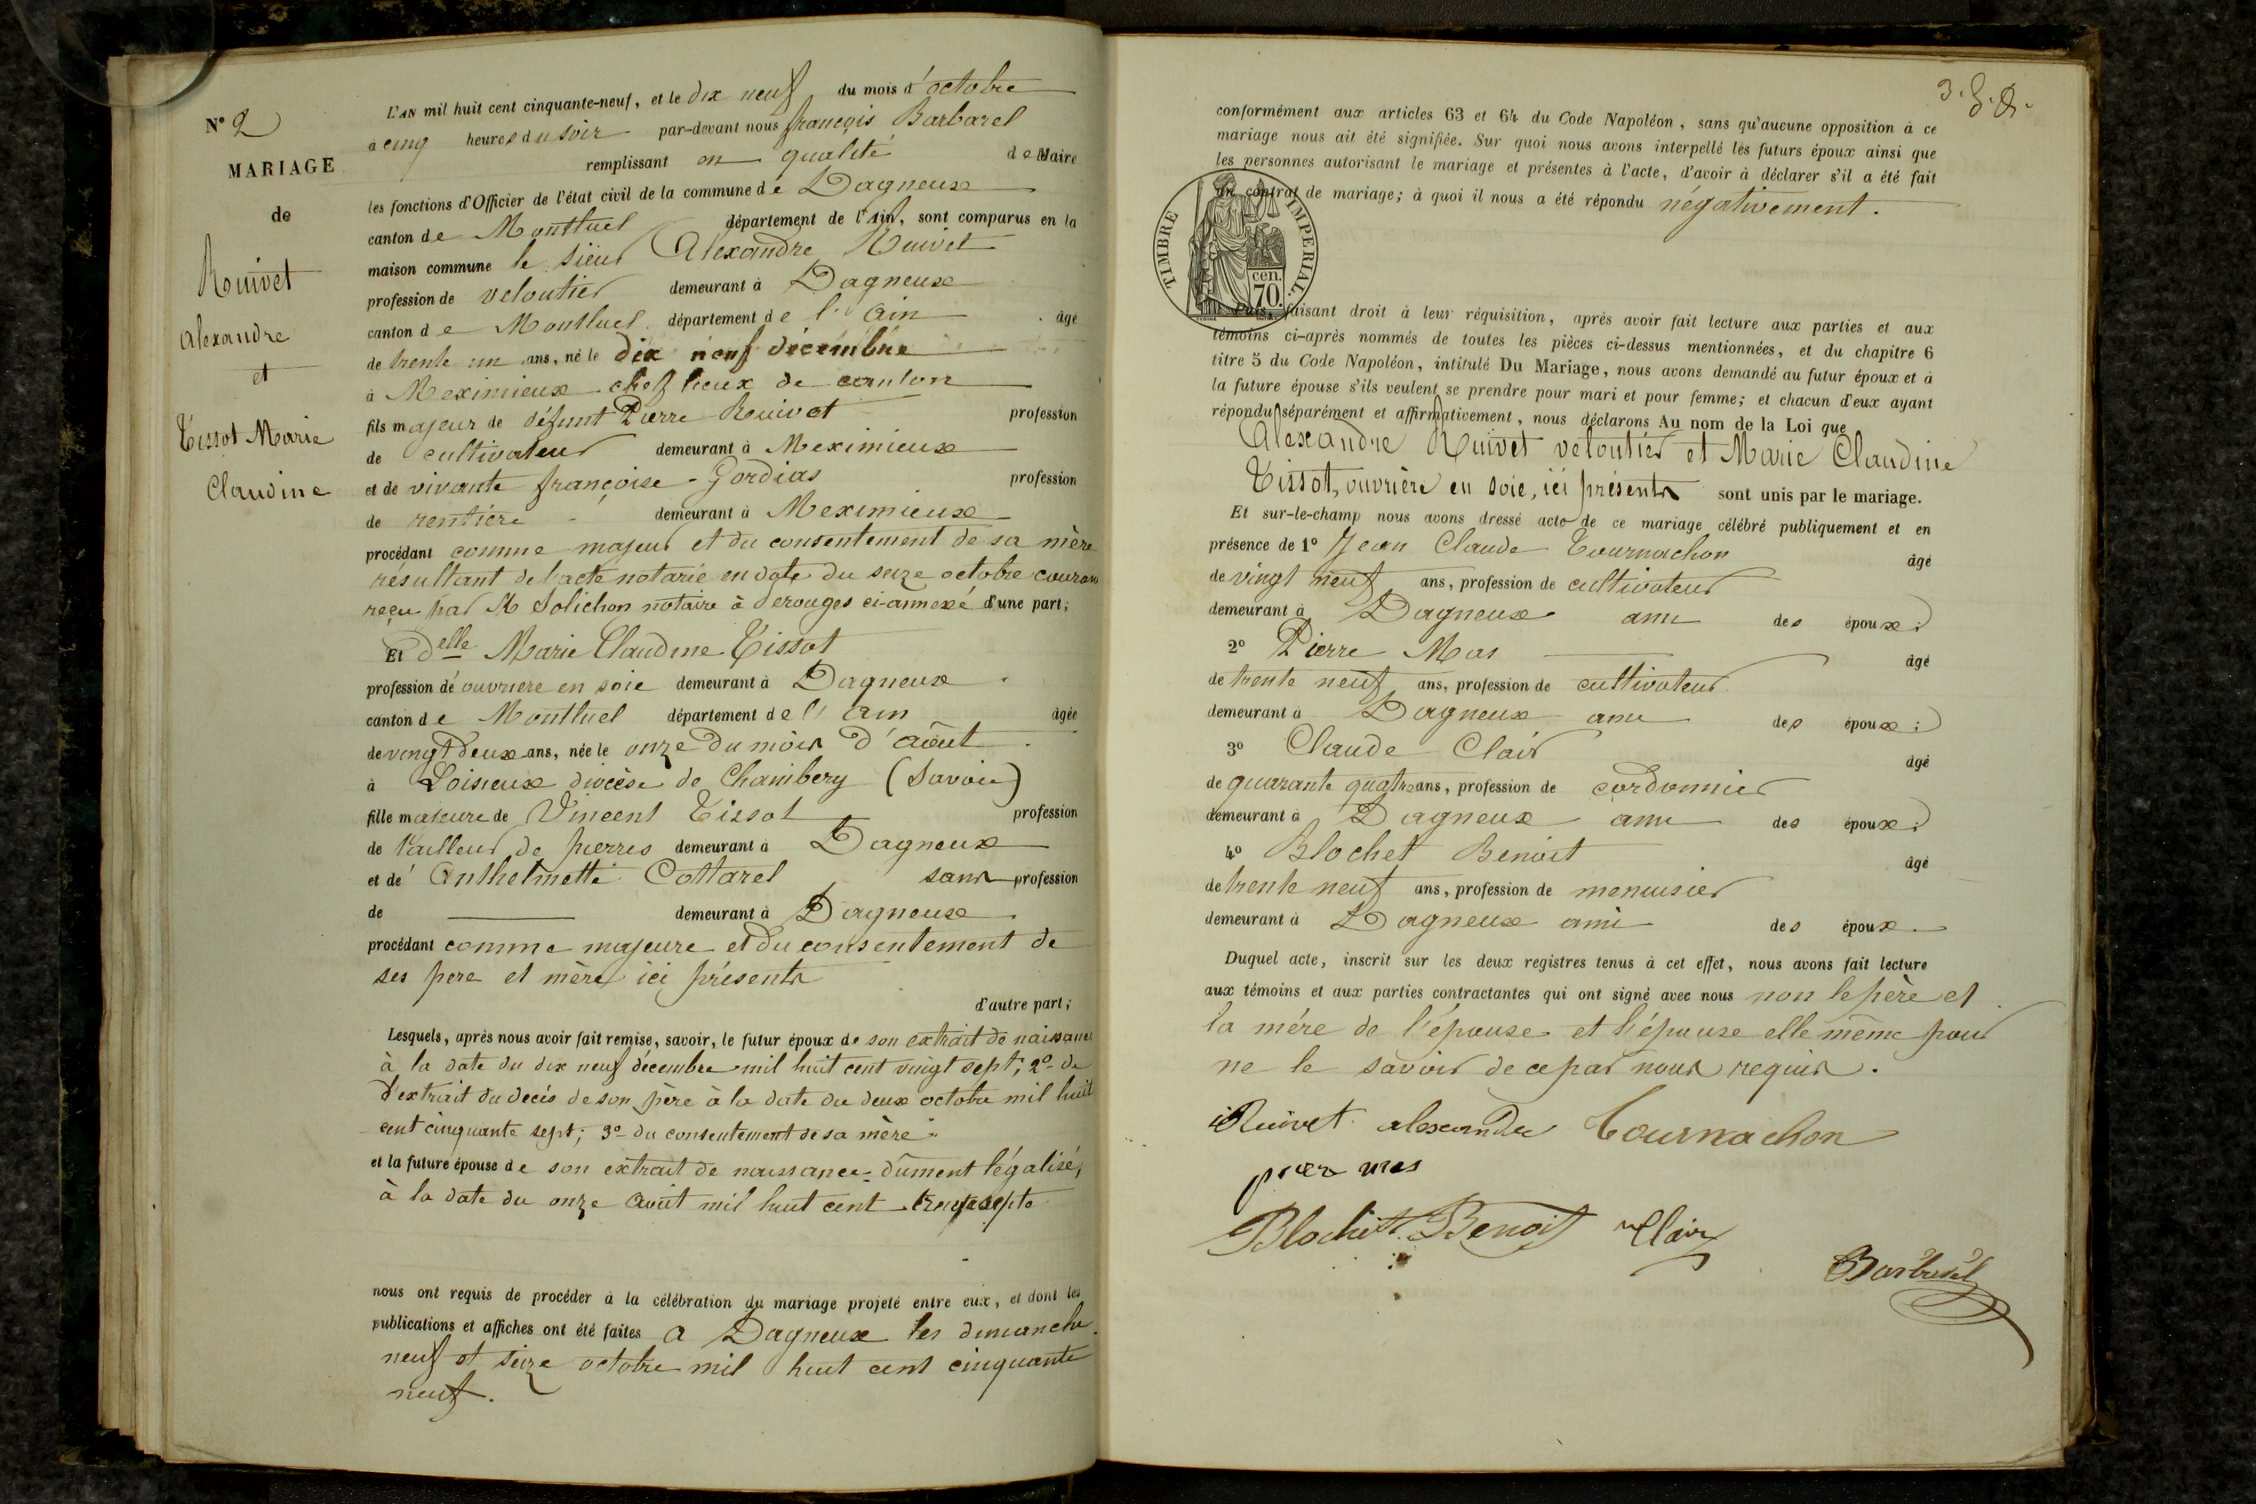 N° 2
MARIAGE
de
Ruivet
Alexandre
et
Tissot Marie
Claudine
L'AN mil huit cent cinquante-neuf, et le dix neuf du mois d'octobre
à cinq heures du soir par-devant nous françois Barbarel
remplissant en qualité de Maire
les fonctions d'Officier de l'état civil de la commune de Dagneux
canton de Montluel département de l'Ain, sont comparus en la
maison commune le sieur Alexandre Ruivet
profession de veloutier demeurant à Dagneux
canton de Montluel département de l'Ain âgé
de trente un ans, né le dix neuf décembre
à Meximieux chef lieux de canton
fils majeur de défunt Pierre Rouivet profession
de cultivateur demeurant à Meximieux
et de vivante françoise Gordias profession
de rentière demeurant à Meximieux
procédant comme majeur et du consentement de sa mère
résultant de l'acte notarié en date du seize octobre courant
reçu par M Solichon notaire à Perouges ci-annexé d'une part;
Et Delle Marie Claudine Tissot
profession d'ouvriere en soie demeurant à Dagneux
canton de Montluel département de l'Ain âgée
de vingt deux ans, née le onze du mois d'août
à Loisieux diocèse de Chambery (Savoie)
fille majeure de Vincent Tissot profession
de tailleur de pierres demeurant à Dagneux
et de Anthelmette Cottarel sans profession
de demeurant à Dagneux
procédant comme majeure et du consentement de
ses pere et mère ici présents
d'autre part;
Lesquels, après nous avoir fait remise, savoir, le futur époux de son extrait de naissance
à la date du dix neuf décembre mil huit cent vingt sept; 2° de
d'extrait du décès de son père à la date du deux octobre mil huit
cent cinquante sept; 3° du consentement de sa mère
et la future épouse de son extrait de naissance dûment légalisé,
à la date du onze août mil huit cent trente sept
nous ont requis de procéder à la célébration du mariage projeté entre eux, et dont les
publications et affiches ont été faites a Dagneux les dimanche
neuf et seize octobre mil huit cent cinquante
neuf.
conformément aux articles 63 et 64 du Code Napoléon, sans qu'aucune opposition à ce
mariage nous ait été signifiée. Sur quoi nous avons interpellé les futurs époux ainsi que
les personnes autorisant le mariage et présentes à l'acte, d'avoir à déclarer s'il a été fait
un contrat de mariage; à quoi il nous a été répondu négativement.
TIMBRE IMPERIAL
cen.
70.
Puis, faisant droit à leur réquisition, après avoir fait lecture aux parties et aux
témoins ci-après nommés de toutes les pièces ci-dessus mentionnées, et du chapitre 6
titre 5 du Code Napoléon, intitulé Du Mariage, nous avons demandé au futur époux et à
la future épouse s'ils veulent se prendre pour mari et pour femme; et chacun d'eux ayant
répondu séparément et affirmativement, nous déclarons Au nom de la Loi que
Alexandre Ruivet veloutier et Marie Claudine
Tissot, ouvrière en soie, ici présents sont unis par le mariage.
Et sur-le-champ nous avons dressé acte de ce mariage célébré publiquement et en
présence de 1° Jean Claude Tournachon âgé
de vingt neuf ans, profession de cultivateur
demeurant à Dagneux ami des époux;
2° Pierre Mas âgé
de trente neuf ans, profession de cultivateur
demeurant à Dagneux ami des époux;
3° Claude Clair âgé
de quarante quatre ans, profession de cordonnier
demeurant à Dagneux ami des époux;
4° Blochet Benoit âgé
de trente neuf ans, profession de menuisier
demeurant à Dagneux ami des époux.
Duquel acte, inscrit sur les deux registres tenus à cet effet, nous avons fait lecture
aux témoins et aux parties contractantes qui ont signé avec nous non le père et
la mére de l'épouse et l'épouse elle même pour
ne le savoir de ce par nous requis.
Ruivet alexandre Tournachon
pier mas
Blochet Benoit Clair
Barbarel